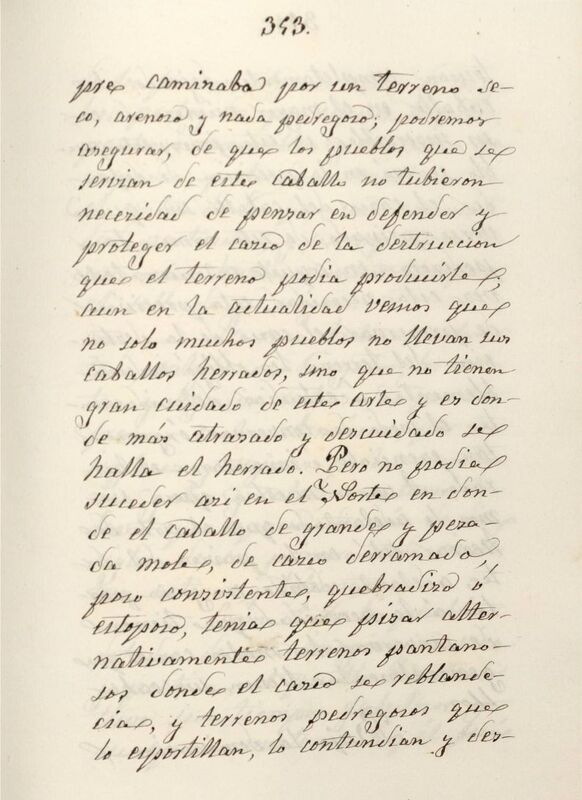 353.
pre caminaba por un terreno se-
co, arenoso y nada pedregoso; podremos
asegurar, de que los pueblos que se
servian de este caballo no tubieron
necesidad de pensar en defender y
proteger el casco de la destruccion
que el terreno podia producirle,
aun en la actualidad vemos que
no solo muchos pueblos no llevan sus
caballos herrados, sino que no tienen
gran cuidado de este arte y es don-
de más atrasado y descuidado se
halla el herrado. Pero no podia
suceder asi en el Norte en don-
de el caballo de grande y pesa-
da mole, de casco derramado,
poco consistente, quebradizo ó
estoposo, tenia que pisar alter-
nativamente terrenos pantano-
sos donde el casco se reblande-
cia, y terrenos pedregosos que
lo esportillan, lo contundian y des-